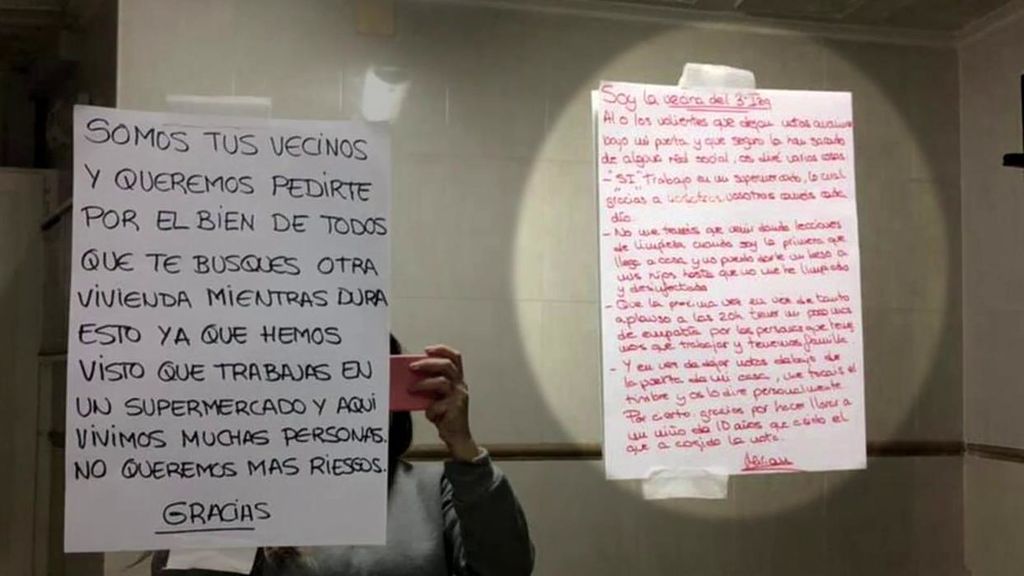 SOMOS TUS VECINOS
Y QUEREMOS PEDIRTE
POR EL BIEN DE TODOS
QUE TE BUSQUES OTRA
VIVIENDA MIENTRAS DURA
ESTO YA QUE HEMOS
VISTO QUE TRABAJAS EN
UN SUPERMERCADO Y AQUI
VIVIMOS MUCHAS PERSONAS.
NO QUEREMOS MAS RIESGOS.
GRACIAS
Soy la vecina del 3º Izq
Al o los valientes que dejan notas
bajo mi puerta y que seguro la han sacado
de alguna red social, os diré varias cosas
- "SI" Trabajo en un supermercado, lo cual
gracias a vosotros coméis cada
día.
- No me tenéis que venir dando lecciones
de limpieza cuando soy la primera que
llego a casa y no puedo darle un beso a
mis hijos hasta que no me he limpiado
y desinfectado
- Que la proxima vez en vez de tanto
aplauso a las 20h tener un poco mas
de empatía por las personas que tene
mos que trabajar y tenemos familia.
- Y en vez de dejar notas debajo de
la puerta de mi casa, me tocais el
timbre y os lo diré personalmente
Por cierto gracias por hacer llorar a
un niño de 10 años que ha sido el
que a cojido la nota.
Miriam